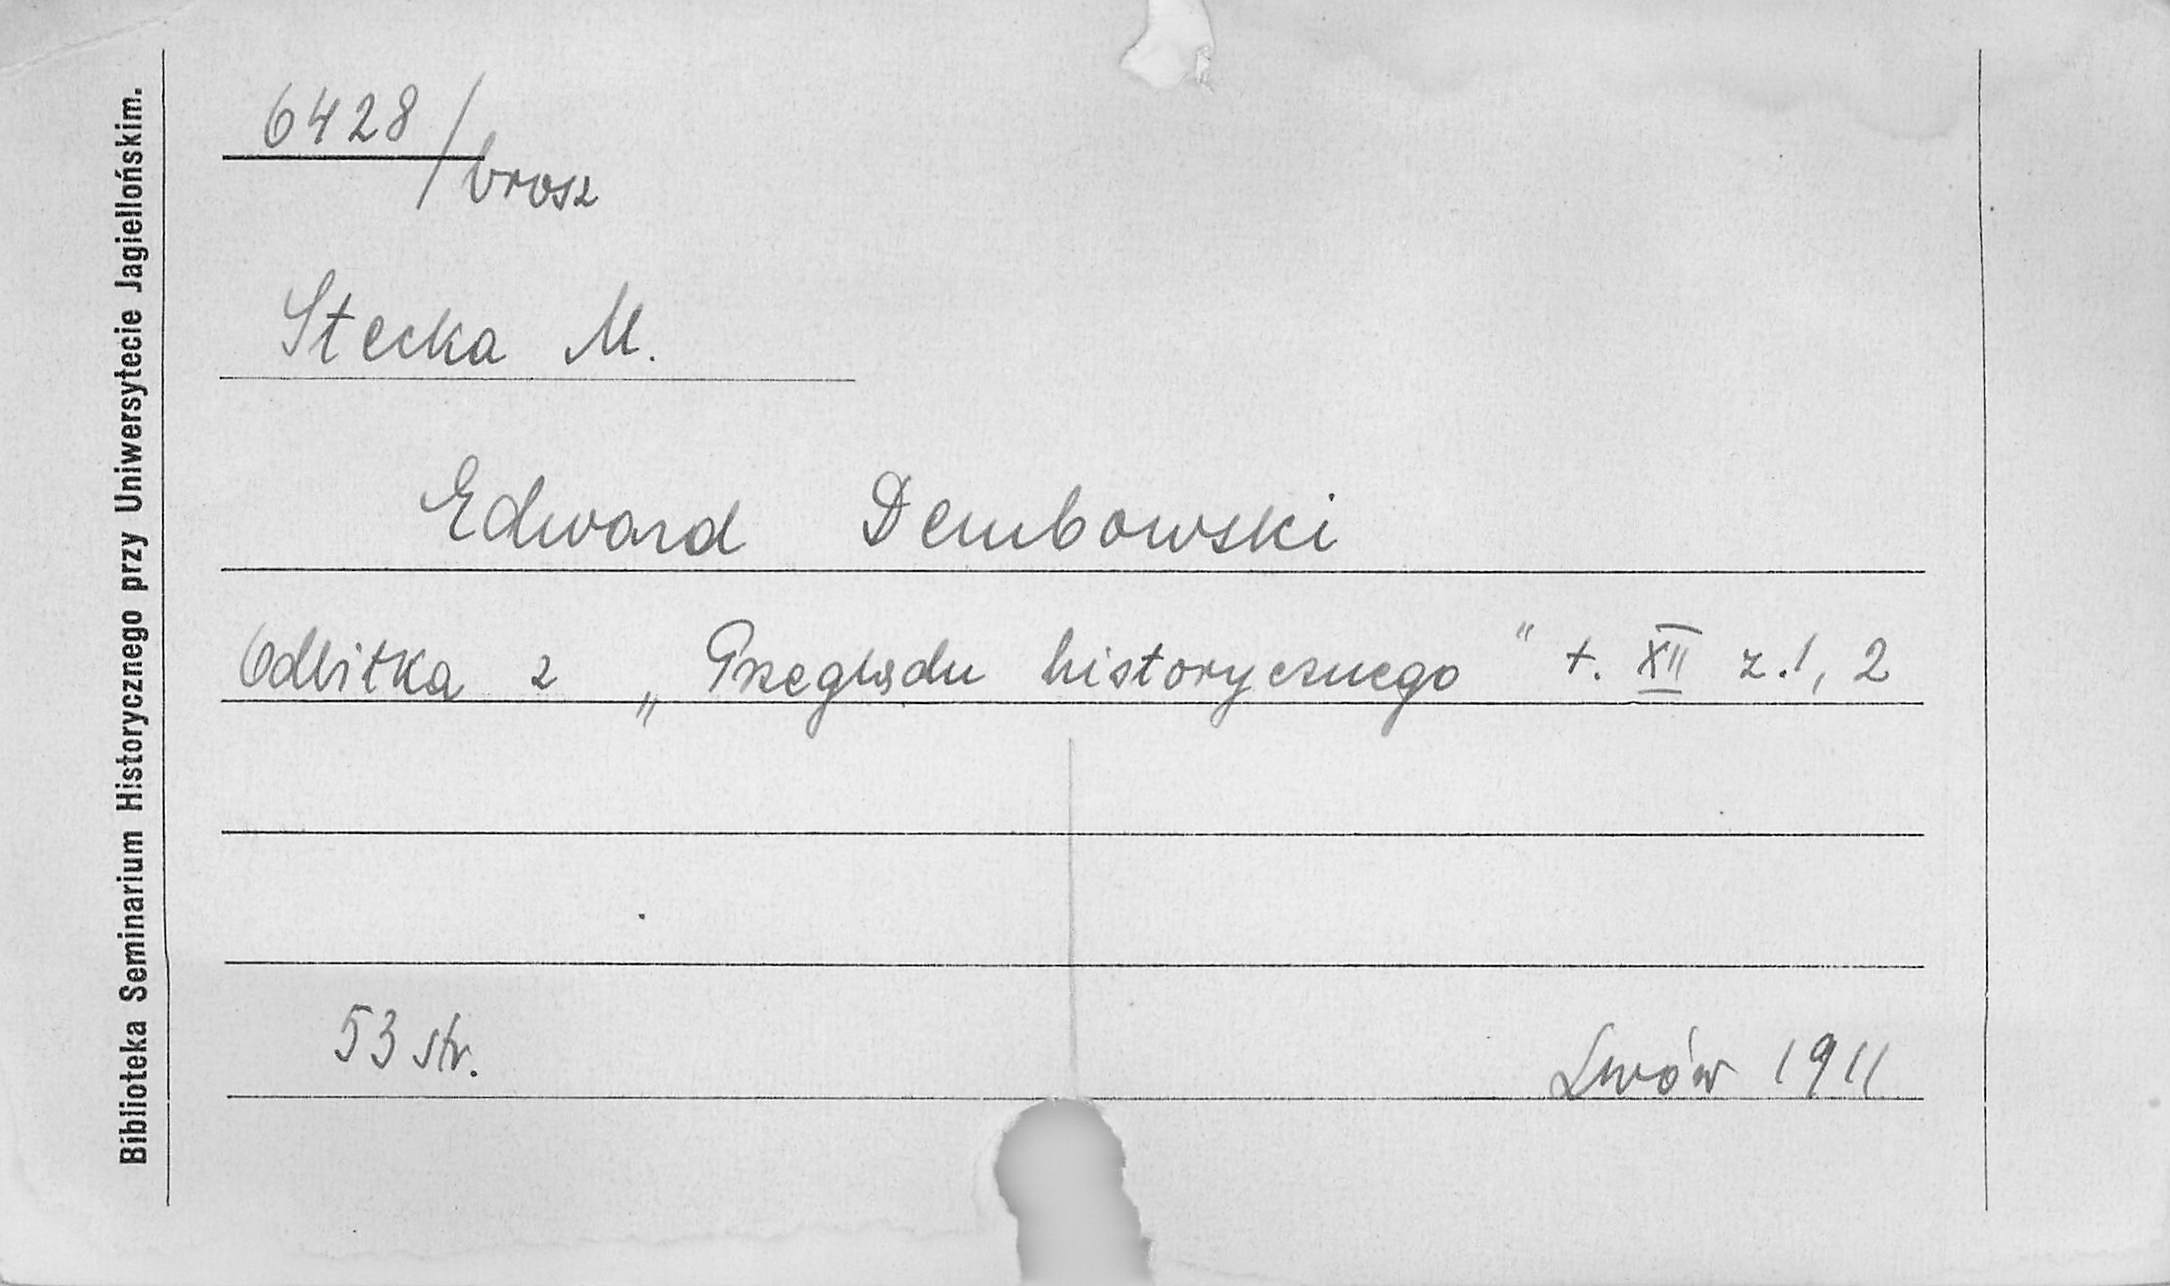 Biblioteka Seminarium Historycznego przy Uniwersytecie Jagiellońskim.
6428/brosz
Stecka M.
Edward Dembowski
Odbitka z „Przeglądu historycznego" t. XII z. 1, 2
53 str.
Lwów 1911